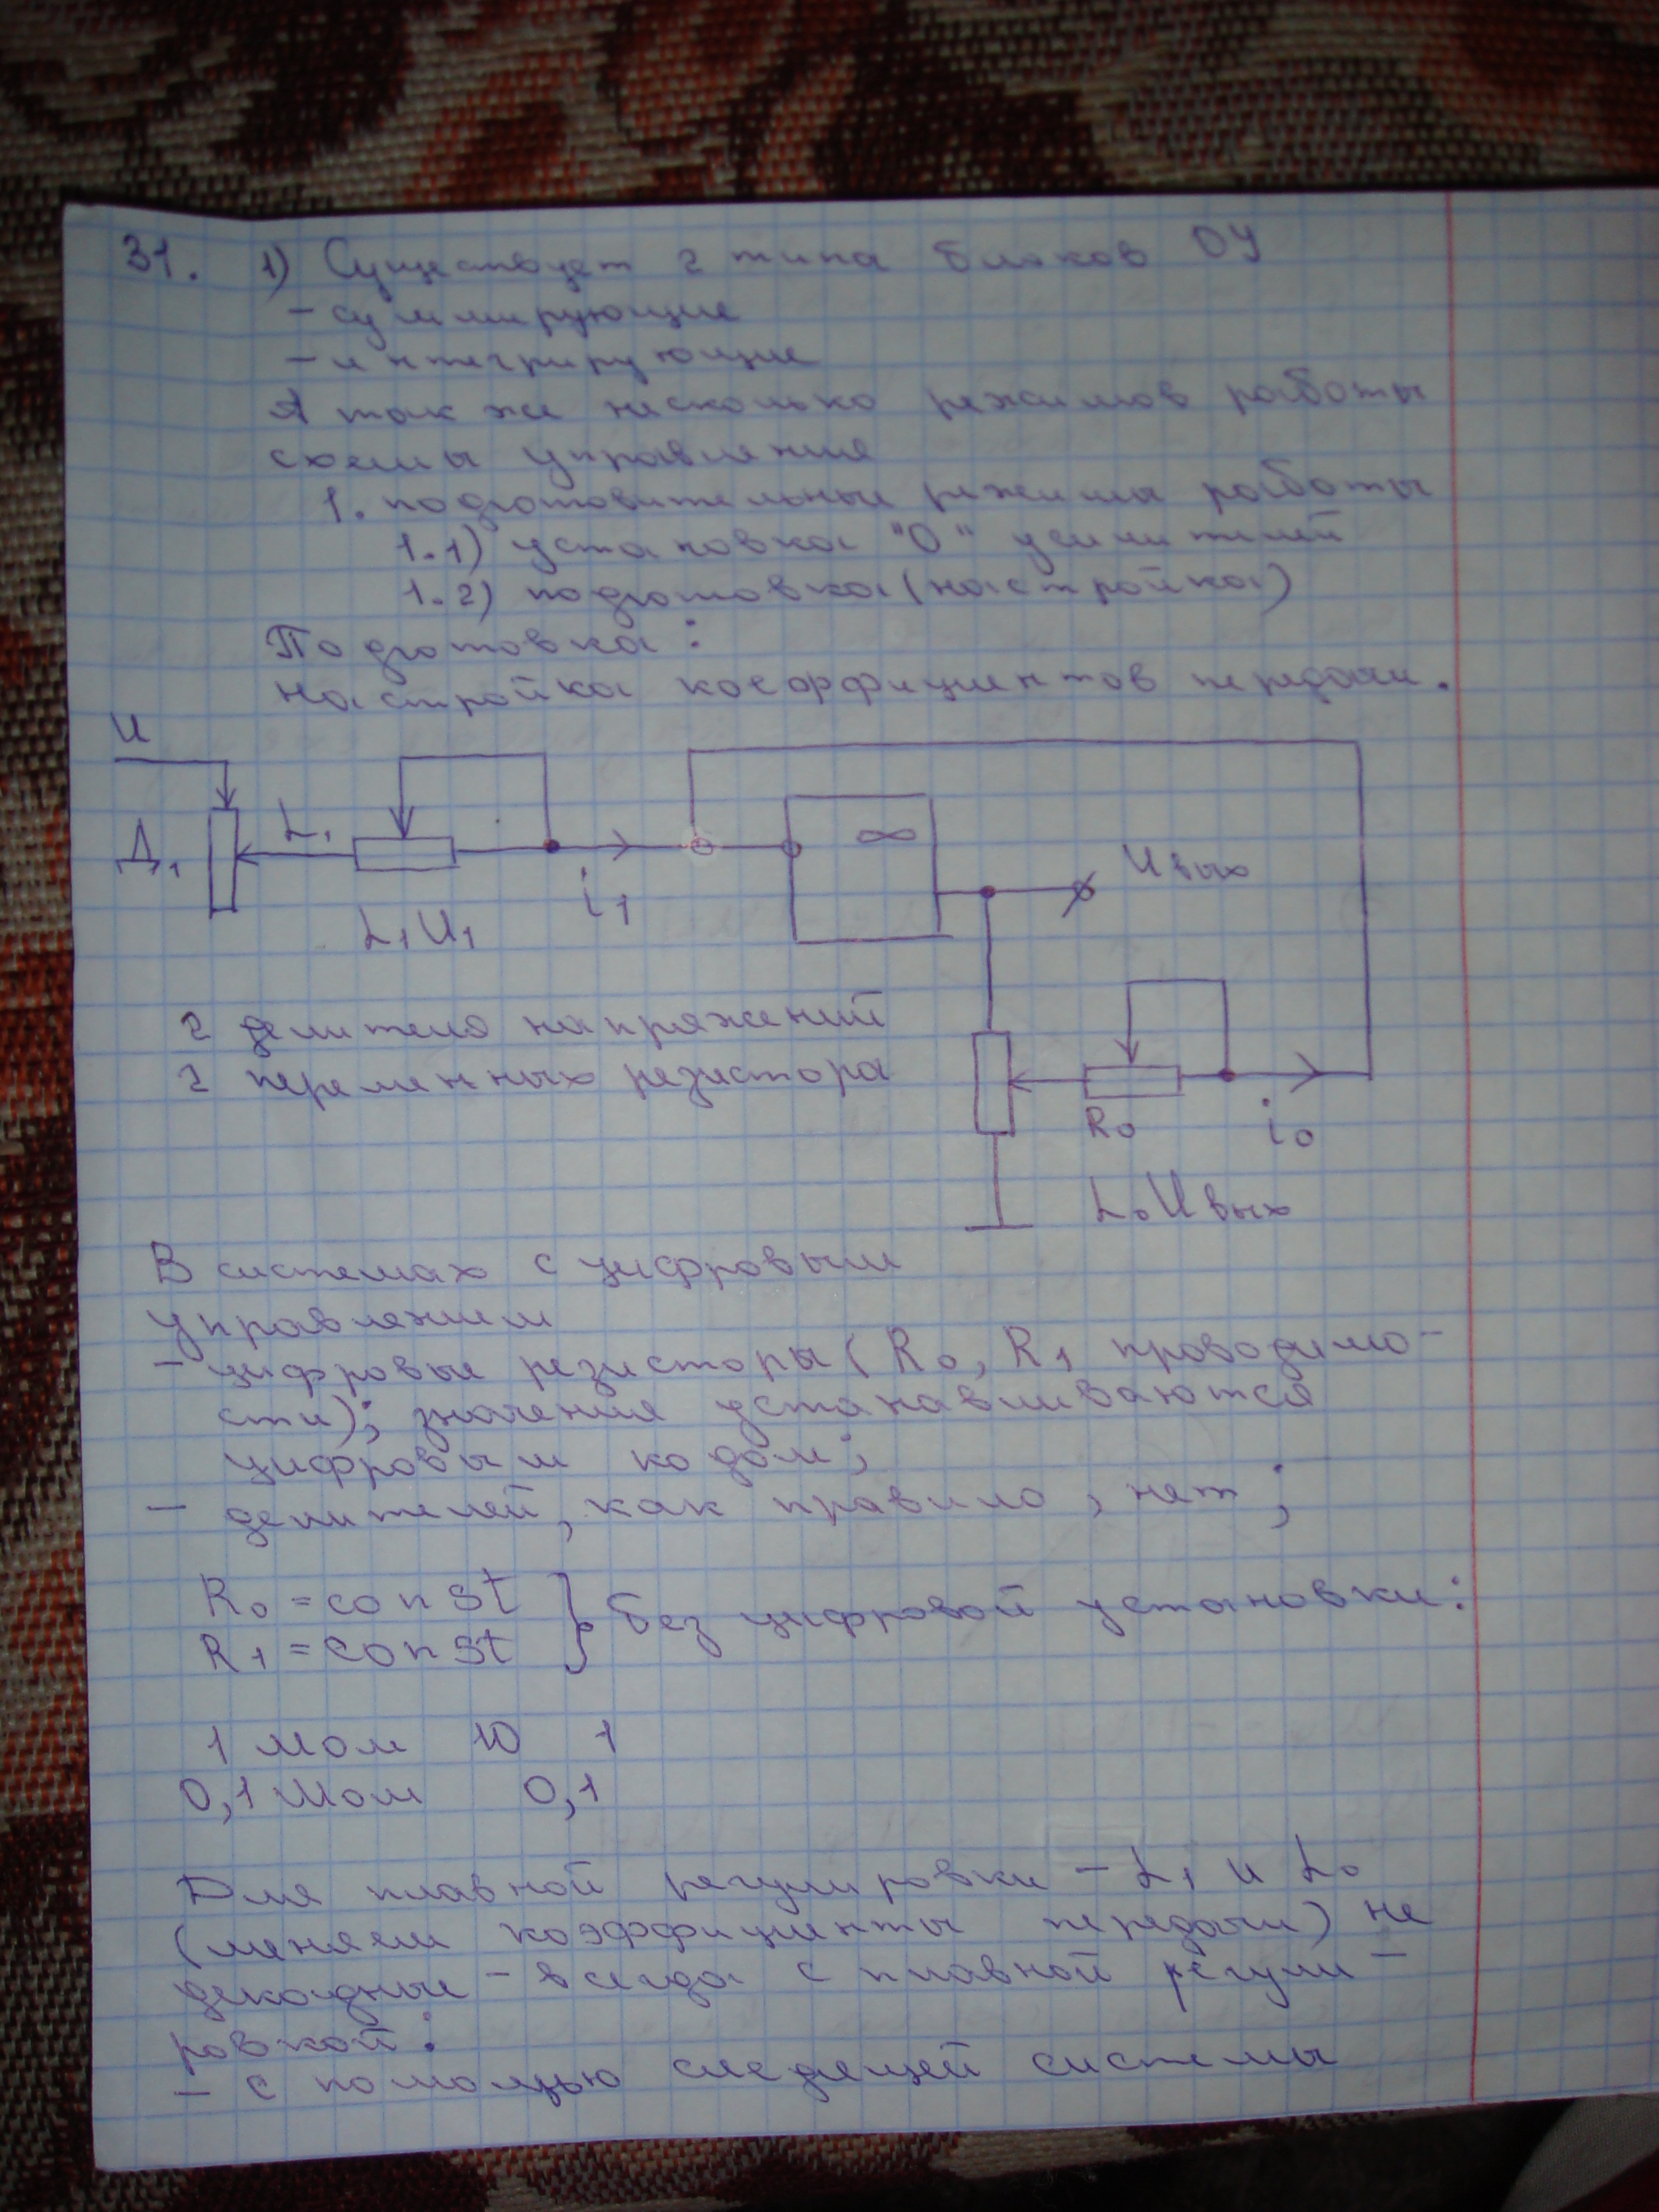 31. 1) Существует 2 типа блоков ОУ
- суммирующие
- интегрирующие
А так же несколько режимов работы
схемы управления
1. подготовительные режимы работы
1.1) установка "0" усилителей
1.2) подготовка (настройка)
Подготовка:
настройка коэффициентов передачи.
U
Д₁
L₁
L₁U₁
i₁
∞
Uвых
2 делителя напряжений
2 переменных резистора
R₀
i₀
L₀Uвых
В системах с цифровым
управлением
- цифровые резисторы (R₀, R₁ проводимо-
сти); значения устанавливаются
цифровым кодом;
- делителей, как правило, нет;
R₀ = const
R₁ = const
} без цифровой установки:
1 Мом 10 1
0,1 Мом 0,1
Для плавной регулировки - L₁ и L₀
(меняем коэффициенты передачи) не
декадные - всегда с плавной регули-
ровкой:
- с помощью следящей системы